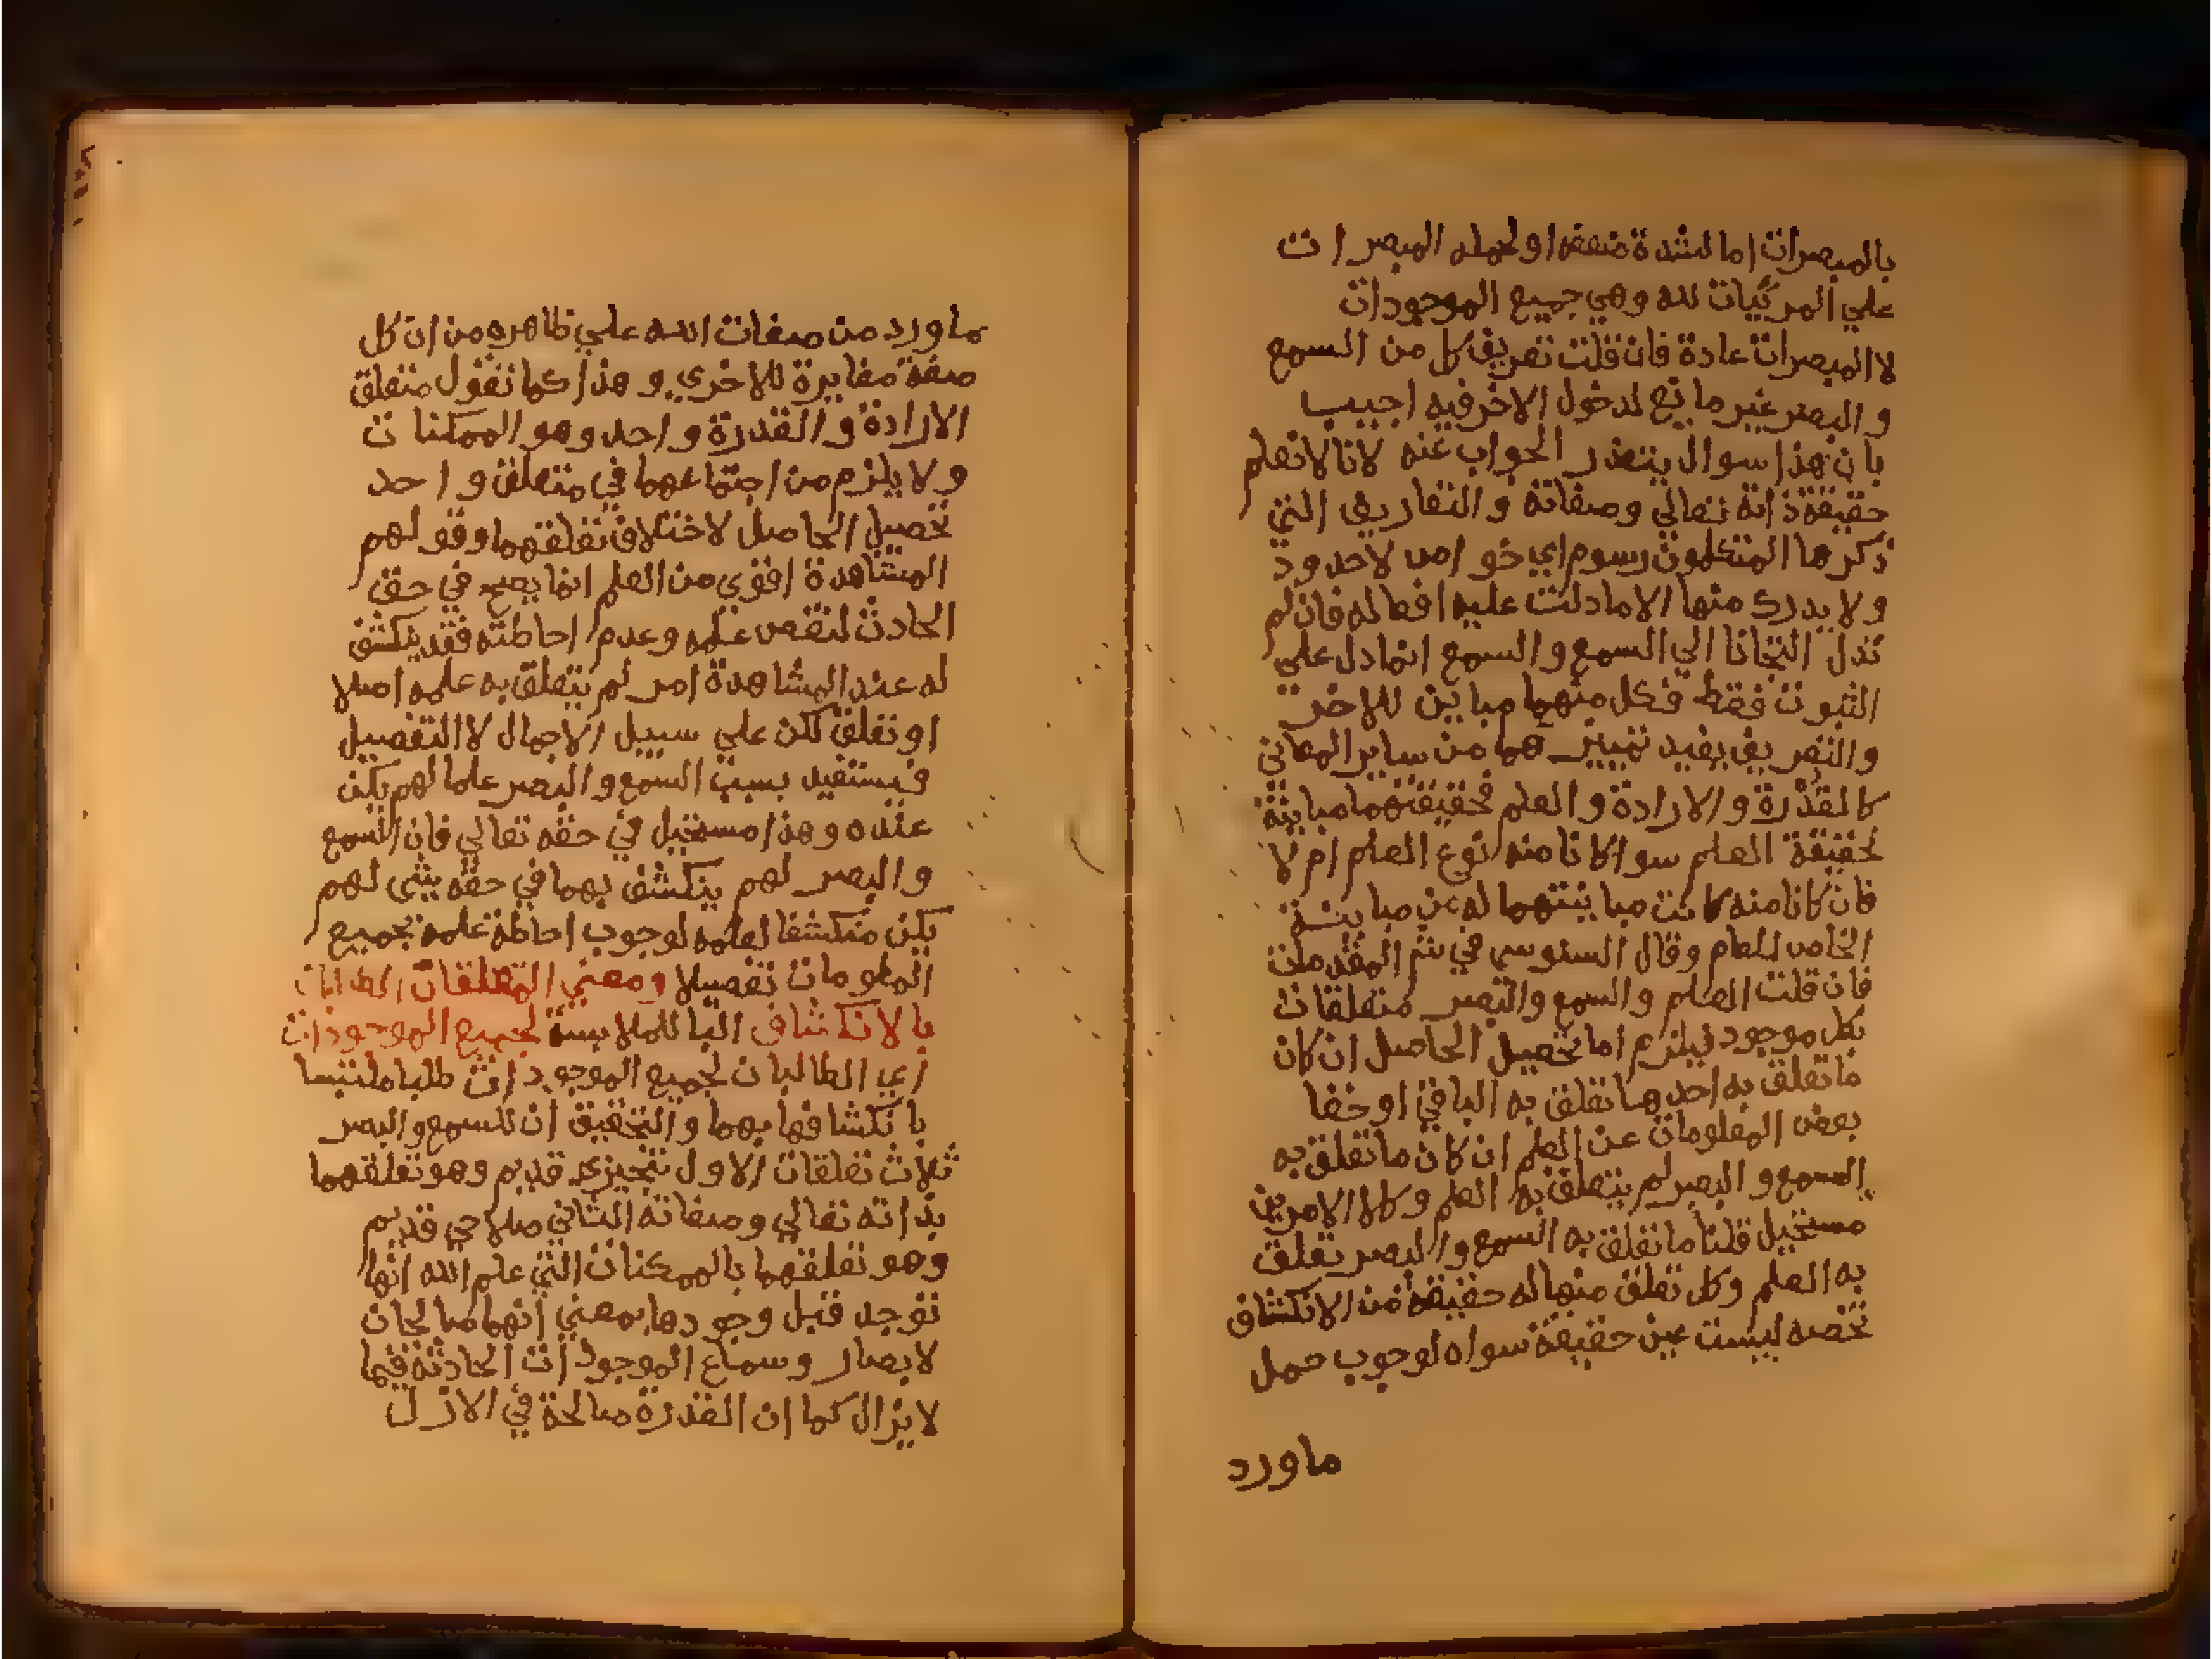 بالمبصرات اما لشدة ضعفه او لحمله المبصرات
علي المرئيات لله وهي جميع الموجودات
لا المبصرات عادة فان قلت تعريف كل من السمع
والبصر غير مانع لدخول الاخر فيه اجيب
بان هذا سوال يتعذر الجواب عنه لانا لا نعلم
حقيقة ذاته تعالي وصفاته والتعاريف التي
ذكرها المتكلمون رسوم اي خواص لا حدود
ولا يدرك منها الا ما دلت عليه افعاله فان لم
تدل التجانا الي السمع والسمع انما دل علي
الثبوت فقط فكل منهما مباين للاخر
والتعريف يفيد تمييزهما من ساير المعاني
كالقدرة والارادة والعلم فحقيقتهما مباينة
لحقيقة العلم سوا كانا منه نوع العلم ام لا
فان كانا منه كانت مباينتهما له عن مباينة
الخاص للعام وقال السنوسي في شر المقدمات
فان قلت العلم والسمع والبصر متعلقات
بكل موجود فيلزم اما تحصيل الحاصل ان كان
ما تعلق به احدها تعلق به الباقي او خفا
بعض المعلومات عن العلم ان كان ما تعلق به
السمع والبصر لم يتعلق به العلم وكلا الامرين
مستحيل قلنا ما تعلق به السمع والبصر تعلق
به العلم وكل تعلق منها له حقيقة من الانكشاف
تخصه ليست عين حقيقة سواه لوجوب حمل
ماورد
ماورد من صفات الله علي ظاهره من ان كل
صفة مغايرة للاخري وهذا كما نقول متعلق
الارادة والقدرة واحد وهو الممكنات
ولا يلزم من اجتماعهما في متعلق واحد
تحصيل الحاصل لاختلاف تعلقهما وقولهم
المشاهدة اقوى من العلم انما يصح في حق
الحادث لنقص علمه وعدم احاطته فقد ينكشف
له عند المشاهدة امر لم يتعلق به علمه اصلا
او تعلق لكن علي سبيل الاجمال لا التفصيل
فيستفيد بسبب السمع والبصر علما لهم يكن
عنده وهذا مستحيل في حقه تعالي فان السمع
والبصر لهم ينكشف بهما في حقه شى لهم
يكن منكشفا لعلمه لوجوب احاطة علمه بجميع
المعلومات تفصيلا ومعني المتعلقان الطالبان
بالانكشاف البا للملابسة لجميع الموجودات
اي الطالبان لجميع الموجودات طلبا ملتبسا
بانكشافها بهما والتحقيق ان للسمع والبصر
ثلاث تعلقات الاول تنجيزى قديم وهو تعلقهما
بذاته تعالي وصفاته الثاني صلاحي قديم
وهو تعلقهما بالممكنات التي علم الله انها
توجد قبل وجودها بمعني انهما صالحان
لابصار وسماع الموجودات الحادثة فيما
لا يزال كما ان القدرة صالحة في الازل